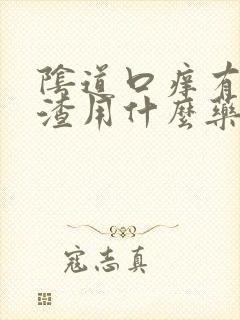 陰道口痒有
渣用什麼藥
寇志真